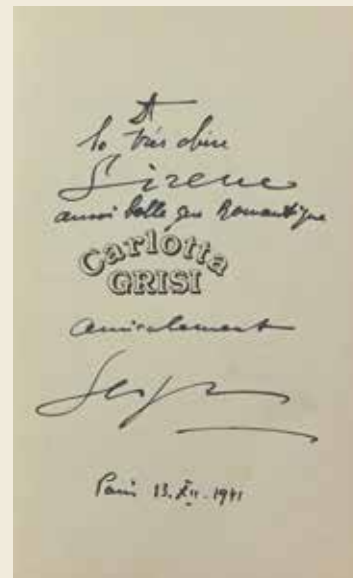 A
la très chère
Sirene
aussi belle que Romantique
Carlotta
GRISI
amicalement
Paris 13.XII.1941